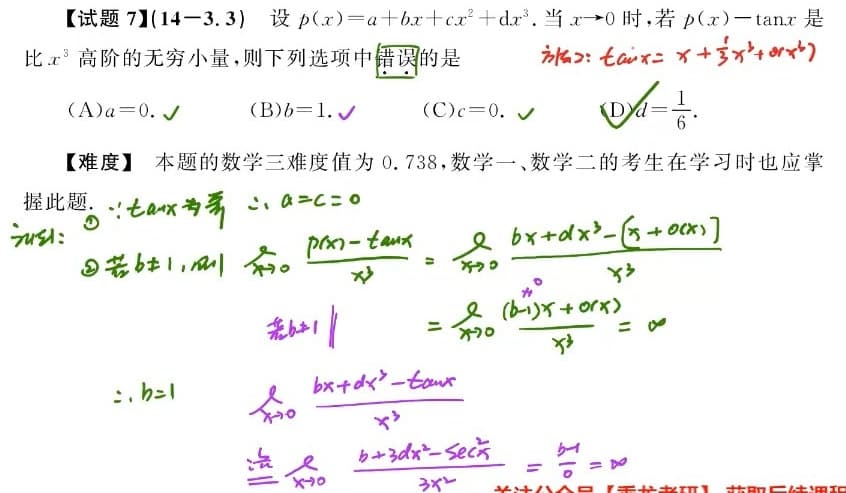 【试题 7】(14-3.3) 设 p(x)=a+bx+cx²+dx³. 当 x→0 时,若 p(x)-tanx 是
比 x³ 高阶的无穷小量,则下列选项中错误的是
方法2: tanx = x + 1/3 x³ + o(x³)
(A)a=0. ✓ (B)b=1. ✓ (C)c=0. ✓ (D)d=1/6.
【难度】 本题的数学三难度值为 0.738,数学一、数学二的考生在学习时也应掌
握此题.
方法1: ① ∵ tanx为奇 ∴ a=c=0
② 若b≠1, 则 l x→0 (p(x)-tanx)/x³ = l x→0 (bx+dx³-[x+o(x)])/x³
若b≠1 = l x→0 ((b-1)x+o(x))/x³ = ∞
≠0
∴ b=1 l x→0 (bx+dx³-tanx)/x³
洛 l x→0 (b+3dx²-sec²x)/3x² = (b-1)/0 = ∞